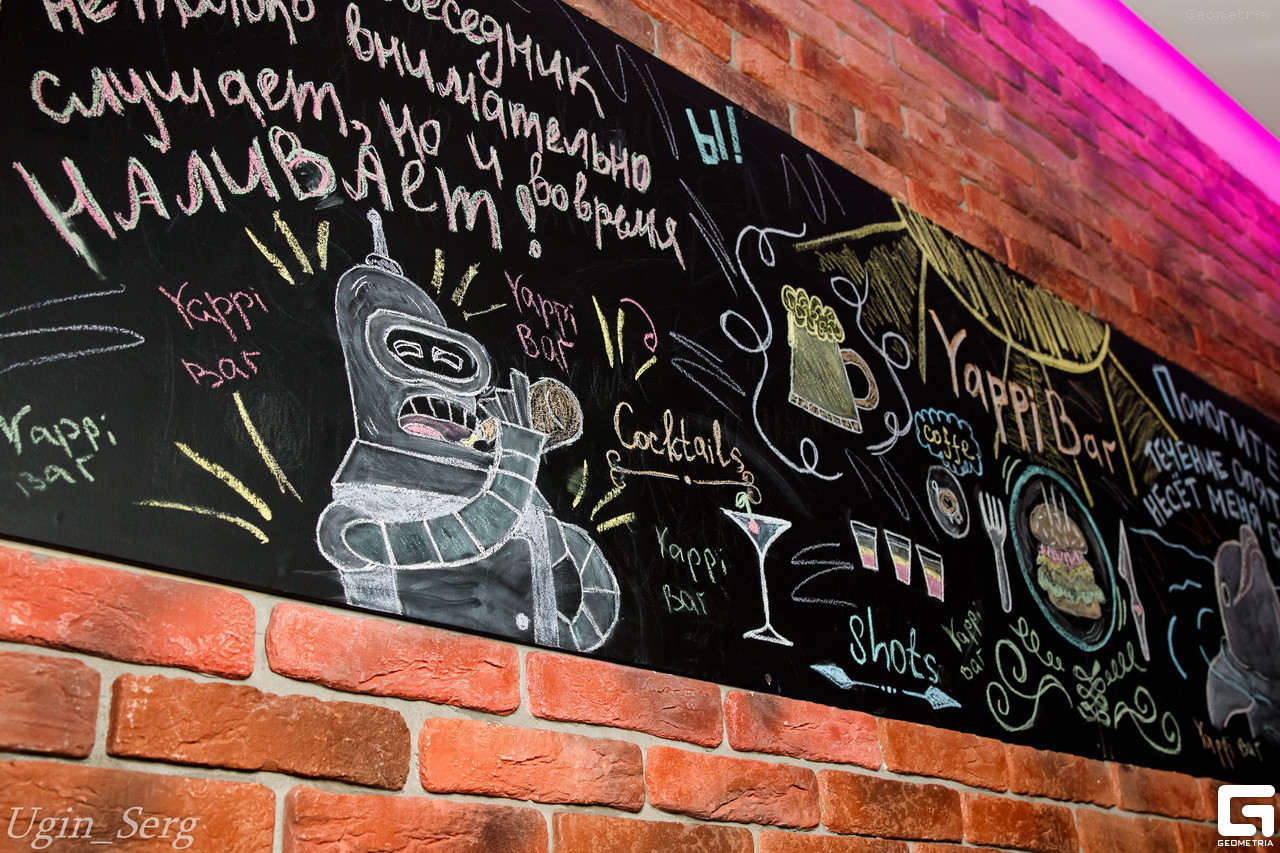 Geometris
не только
собеседник
внимательно
слушает, но и вовремя
НАЛИВАЕТ!
Ы!
Yappi
Bar
Yappi
Bar
Yappi
Bar
Cocktails
Yappi
Bar
Shots
coffe
Yappi Bar
Yappi
Bar
ПОМОГИТЕ
ТЕЧЕНИЕ ОПЯТ
НЕСЁТ МЕНЯ
Yappi Bar
Ugin_Serg
G
GEOMETRIA